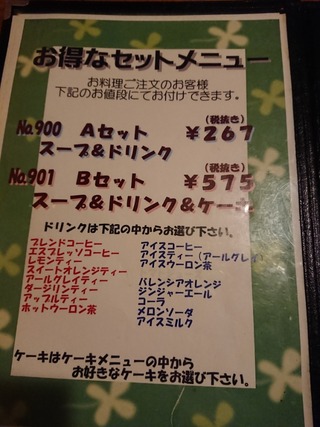 お得なセットメニュー
お料理ご注文のお客様
下記のお値段にてお付けできます。
(税抜き)
№900 Aセット ¥267
スープ&ドリンク
(税抜き)
№901 Bセット ¥575
スープ&ドリンク&ケーキ
ドリンクは下記の中からお選び下さい。
ブレンドコーヒー
エスプレッソコーヒー
レモンティー
スイートオレンジティー
アールグレイティー
ダージリンティー
アップルティー
ホットウーロン茶
アイスコーヒー
アイスティー(アールグレイ)
アイスウーロン茶
バレンシアオレンジ
ジンジャーエール
コーラ
メロンソーダ
アイスミルク
ケーキはケーキメニューの中から
お好きなケーキをお選び下さい。